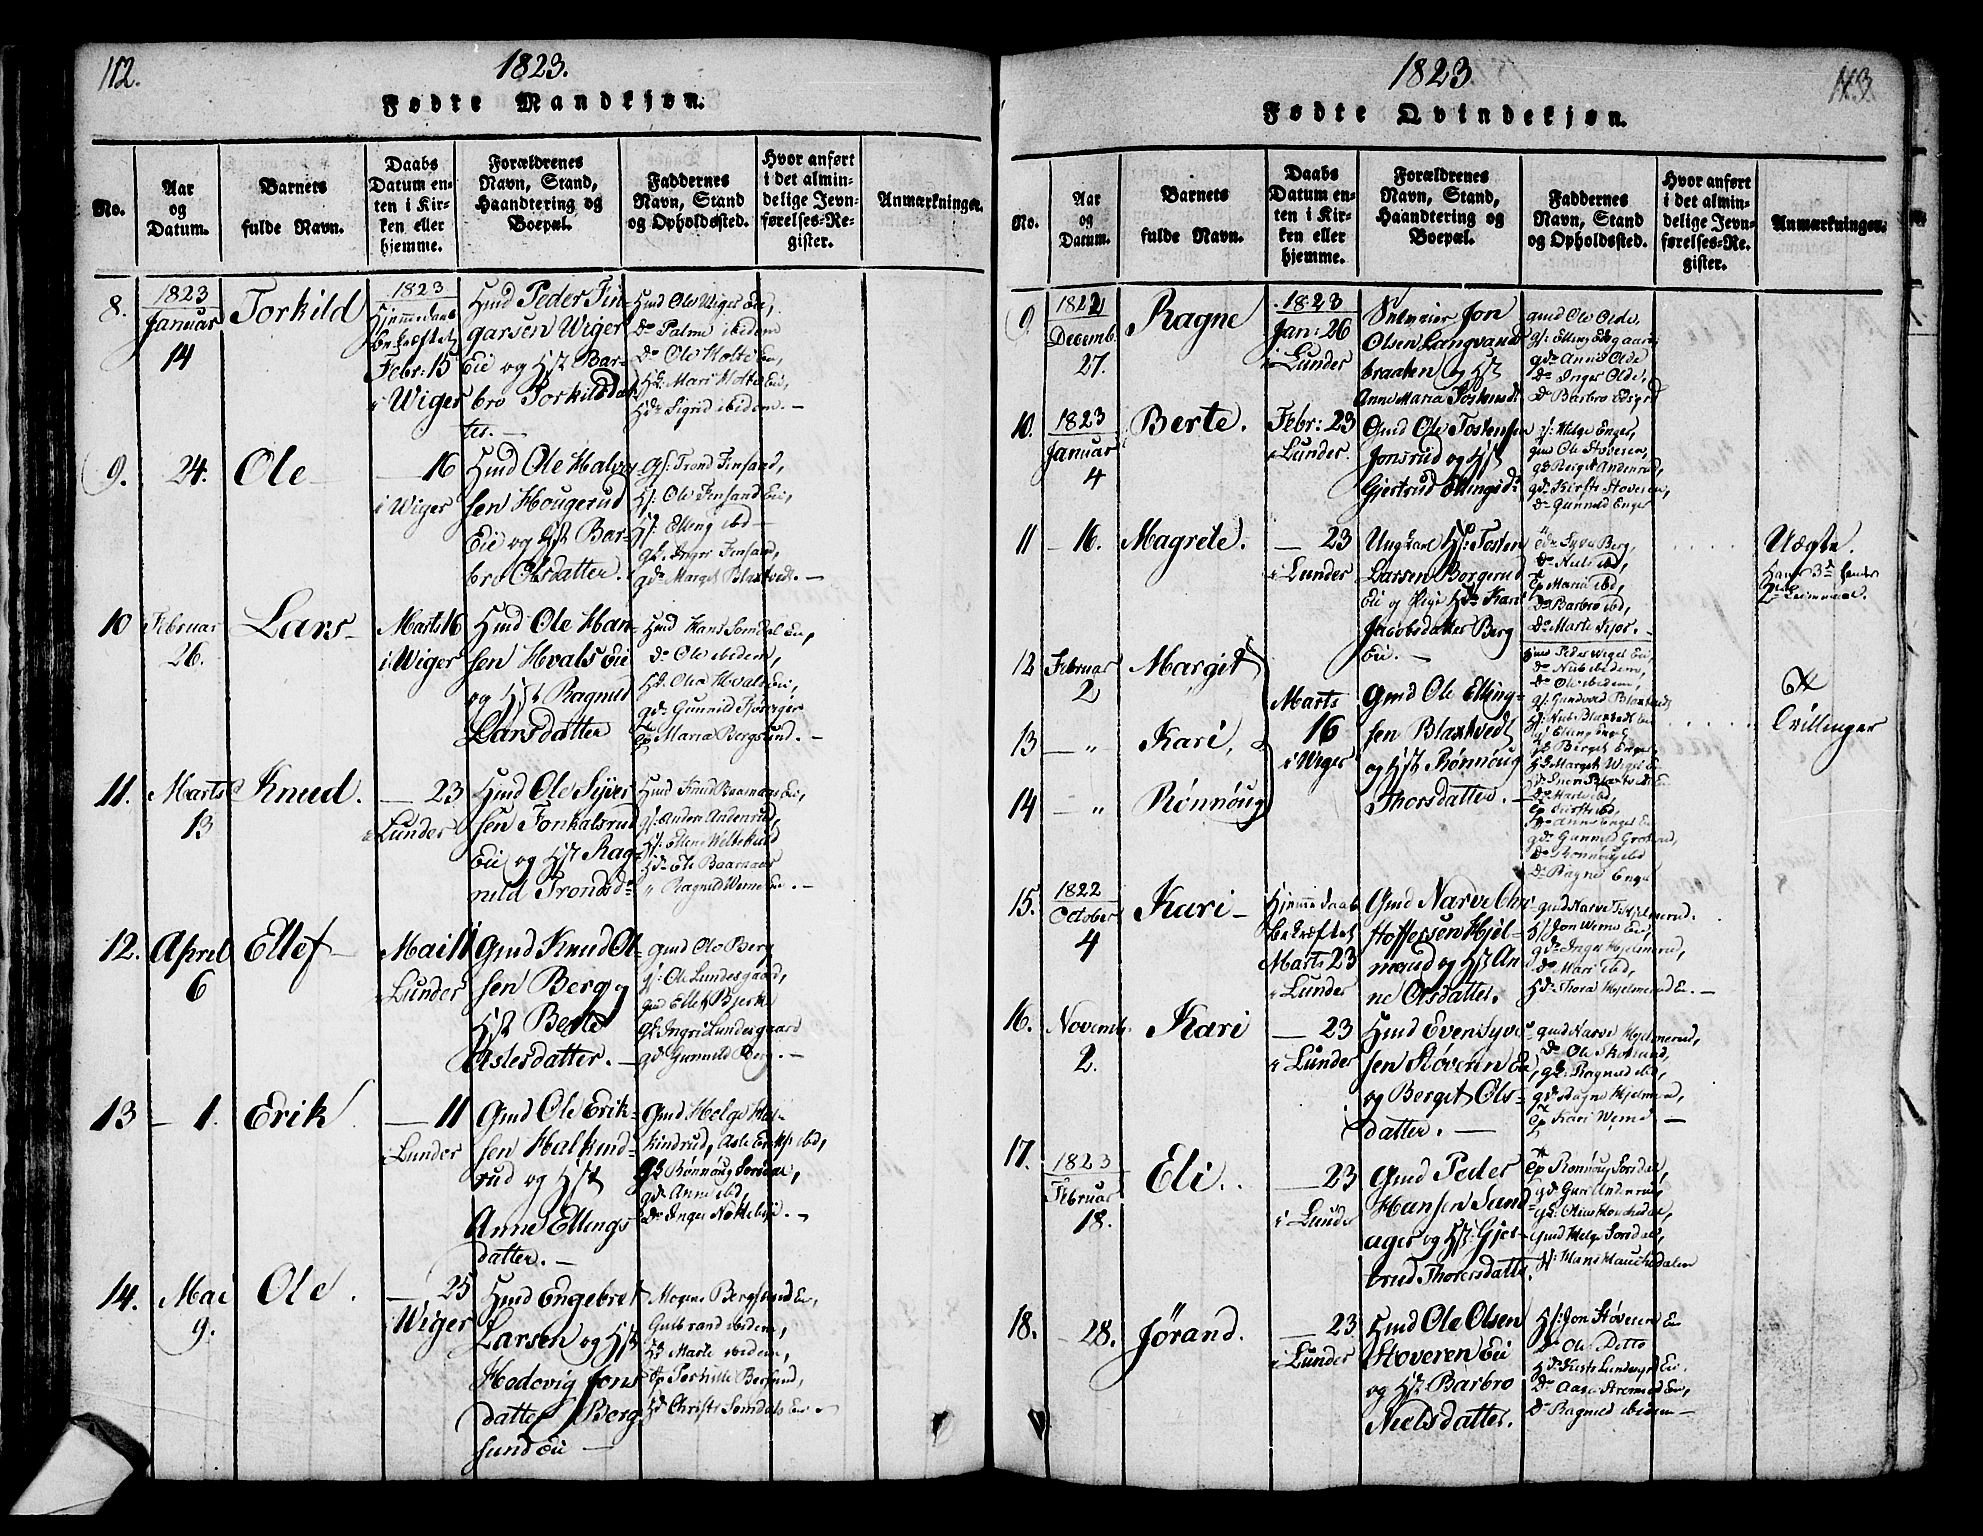 112.
1823.
Fødte Mandkjøn.
No.
Aar
og
Datum.
Barnets
fulde Navn.
Daabs
Datum en-
ten i Kir-
ken eller
hjemme.
Forældrenes
Navn, Stand,
Haandtering og
Boepæl.
Faddernes
Navn, Stand
og Opholdssted.
Hvor anført
i det almin-
delige Jevn-
førelses-Re-
gister.
Anmærkninger.
8.
1823
Januar
14
Torkild
1823
Hjemmedaab
bekræftet
Febr: 15
i Wiger
Hmd Peder Fin-
garsen Wiger
Eie og Hst Bar-
bro Torkilsdat-
ter. —
Hmd Ole Wiger Eie,
Do Palme ibidem
Do Ole Holte Eie,
Hk Mari Holte Eie,
Hde Sigrid ibidem. —
9.
24.
Ole
— 16
i Wiger
Hmd Ole Halvor
sen Hougerud
Eie og Hst Bar-
bro Olsdatter.
gs: Trond Finsand,
Hs: Ole Finsand Eie,
Hs: Elling ibd —
gk: Inger Finsand,
gde Margit Blaxtvedt. —
10
Februar
26.
Lars
Marts 16
i Wiger
Hmd Ole Han-
sen Hvals Eie
og Hst Ragnild
Larsdatter
Hmd Hans Somdal Eie,
do Ole ibidem,
Hd: Olea Hvals Eie,
gde Gunnild
Tp Maria Bergsund. —
11.
Marts
13
Knud.
— 23
i Lunder
Hmd Ole Syver
sen Fonkalsrud
Eie og Hst Rag-
nild Trondsd:
Hmd Knud Baarnaas Eie,
gs: Anders Anderud,
Hde Eli Baarnaas
" Ragnild Weme Eie. —
12.
April
6
Ellef
Mai 11
i Lunder
Gmd Knud Ol-
sen Berg og
Hst Berte
Aslesdatter. —
Gmd Ole Berg
gs: Ole Lundesgaard,
gmd Ellef Bjerke
gk: Ingri Lundesgaard
gd: Gunnild Berg. —
13
— 1.
Erik
— 11
i Lunder
Gmd Ole Erik-
sen Halkind-
rud og Hst
Anne Ellings
datter. —
Gmd Helge Hal-
kindrud, Asle Eriks: ibd,
gk Rønnoug Sordal,
gde Anne ibd,
Do Inger Nøttebye. —
14.
Mai
9.
Ole.
— 25
i Wiger
Hmd Engebret
Larsen og Hst
Hedevig Jons
datter Berg
sund Eie —
Mogens Bergsund Eie,
Gulbrand ibidem,
Hk Marte ibidem,
Tp Pernille Bersund,
Hd Christi Somdals Eie.
1823
113
Fødte Qvindekjøn.
No.
Aar
og
Datum.
Barnets
fulde Navn.
Daabs
Datum en-
ten i Kir-
ken eller
hjemme.
Forældrenes
Navn, Stand,
Haandtering og
Boepæl.
Faddernes
Navn, Stand
og Opholdssted.
Hvor anført
i det almin-
delige Jevn-
førelses-Re-
gister.
Anmærkninger.
9.
1822
Decemb.
27.
Ragne
1823
Jan: 26
i Lunder
Selveier Jon
Olsen Langvand
braaten og Hst
Anne Maria Tostensd:
gmd Ole Olde,
gs: Elling Elsgaard,
gde Anne Olde
Do Inger Olde,
Do Barbro Elsgrd
10.
1823
Januar
4
Berte.
Febr: 23
i Lunder.
Gmd Ole Tostensen
Jonsrud og Hst
Gjertrud Ellingsd:
gs: Helge Enger,
gmd Ole Støveren,
gk Berget Anderud,
gde Kirsti Støveren,
Do Gunnild Enger
11
— 16.
Magrete.
— 23
i Lunder
Ungkarl Hs: Tosten
Larsen Borgerud
Eie og Pige Hde Kari
Jacobsdatter Berg
Eie. —
Syva Berg,
Do Niels ibd,
Tp Maria ibd,
do Barbro ibd,
Do Marte Fjør. —
Uægte.
Hans 3de
12
Februar
2
Margit
13
— "
Kari,
14
— "
Rønnoug
Marts
16
i Wiger
Gmd Ole Elling-
sen Blaxtvedt
og Hst Rønnoug
Thorsdatter. —
Hmd Peder Wiger Eie,
do Niels ibidem,
Do Ole ibidem,
gs: Gundvald Blaxtvedt
Hs: Niels Blaxtvedt Eie
gs Elling ibd,
gk Berget Enger,
Hk Margit Wiger Eie
gde Gunnild
Do Rønnoug ibd
Do Ragne Enger
Tvillinger
15.
1822
October
4
Kari —
Hjemme daab
bekræftet
Marts 23
i Lunder
Gmd Narve Chri-
stoffersen Hjel-
merud og Hst An-
ne Olsdatter.
gmd Narve Hjelmerud.
Hs: Jon Weme Eie,
gde Inger Hjelmerud,
do Mari ibd,
Hde Thora Hjelmerud Eie. —
16.
Novemb.
2.
Kari
— 23
i Lunder
Hmd Even Syver
sen Støveren Eie,
og Berget Ols-
datter. —
gmd Narve Hjelmerud,
do Ole Skollerud,
gk: Ragnild ibd,
gde Ragne Hjelmerud,
Tp Kari Weme —
17.
1823
Februar
18.
Eli..
— 23
i Lunde
Gmd Peder
Hansen Sand-
ager og Hst: Gjer-
trud Thoresdatter.
Tp Rønnoug Sordal,
gde Guri Anderud,
gmd Helge Sordal,
Hs Hans Hauchedalen
18.
— 28.
Jørand.
— 23
i Lunder
Hmd Ole Olsen
Støveren Eie
og Hst Barbro
Neelsdatter.
Hs: Jon Støveren Eie
Do Ole Ditto
Hde Kirsti Lundesgrd Eie.
Do Aase Strømsod Eie,
Do Ragnild ibidem —